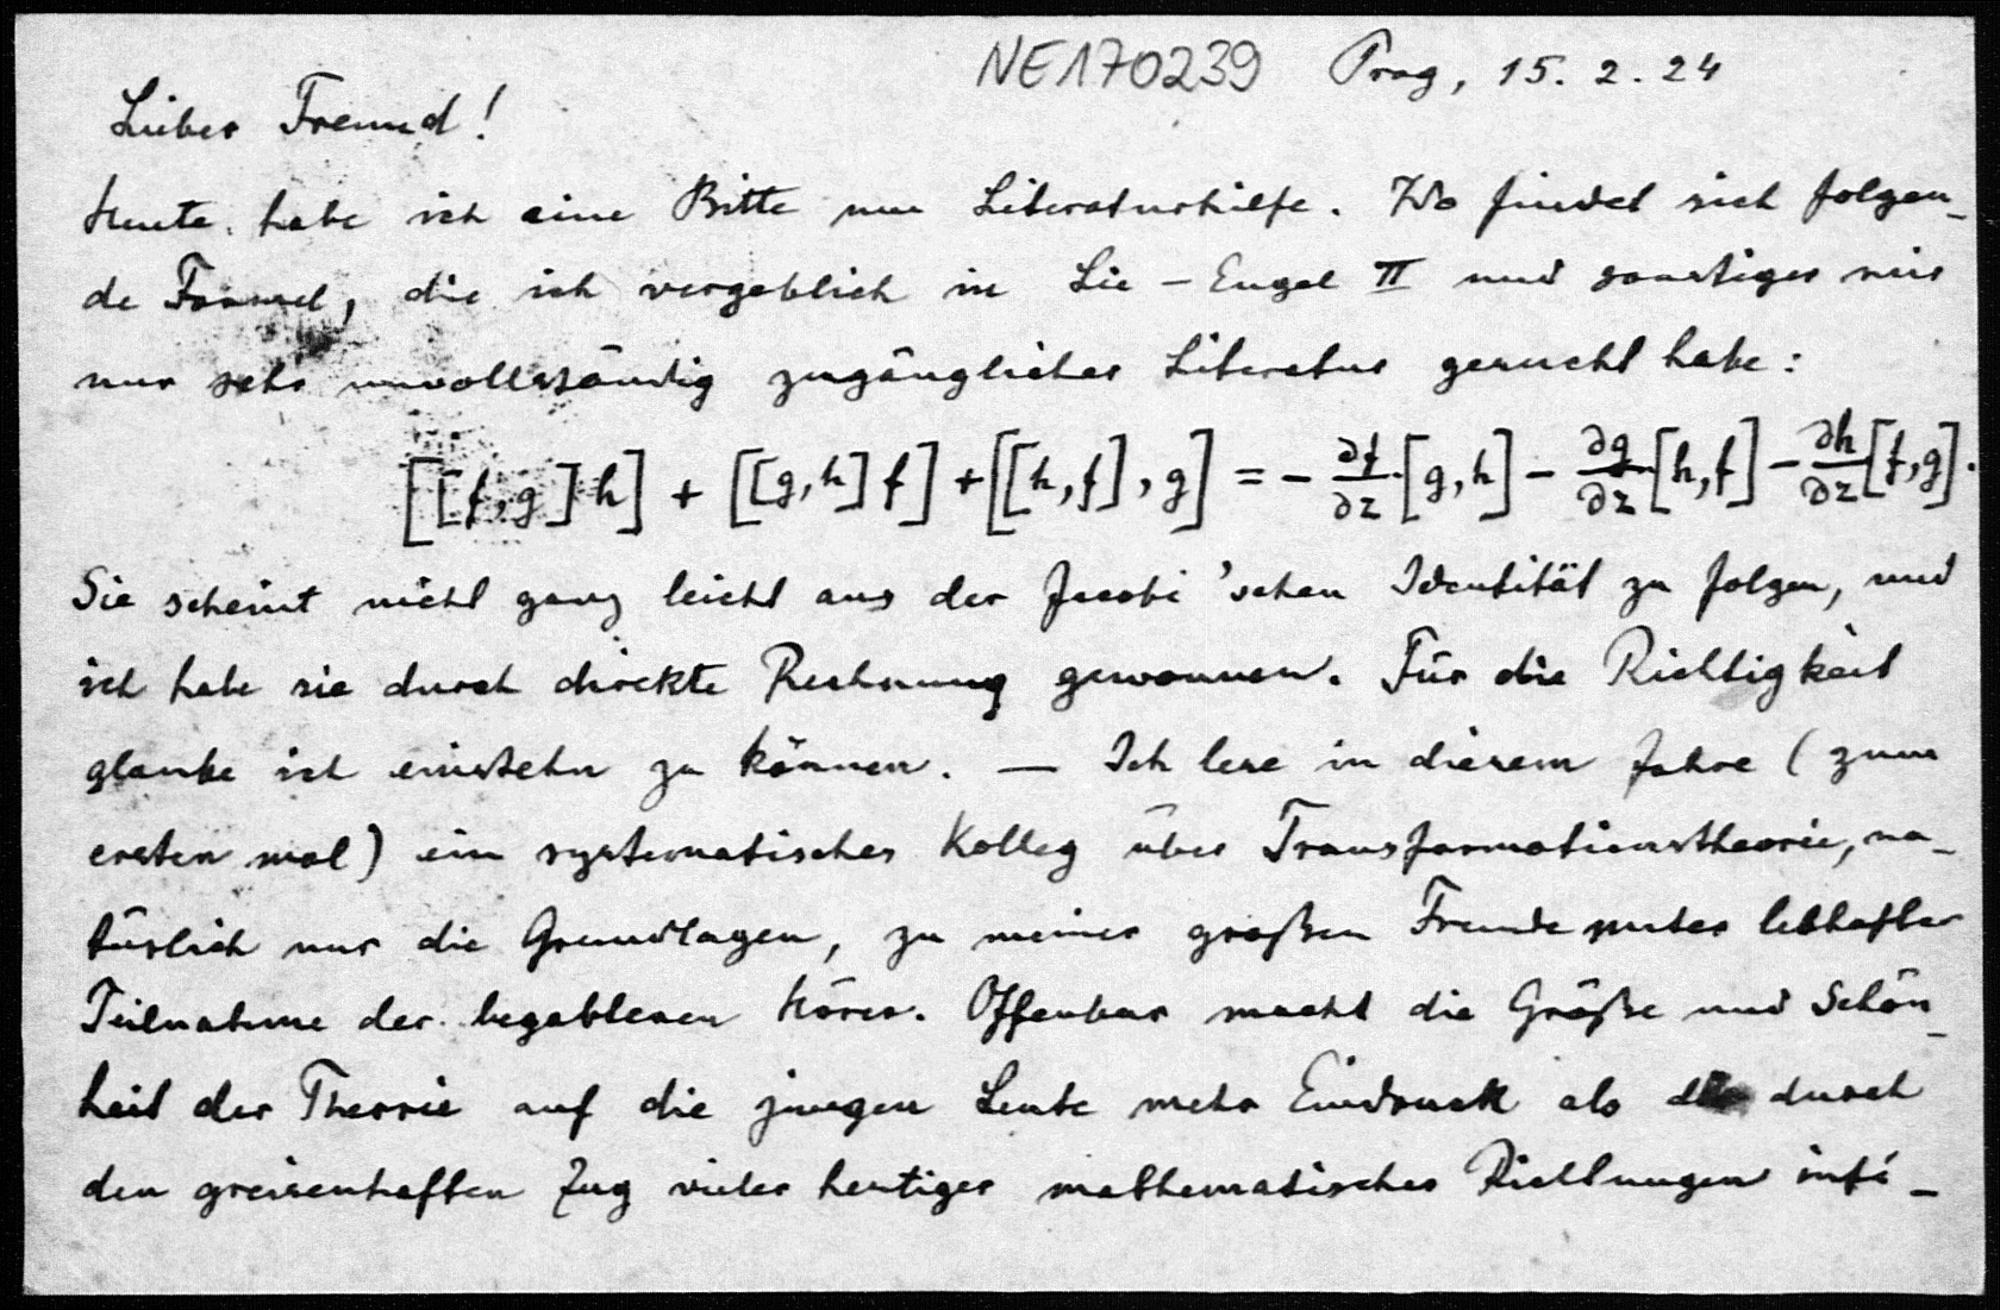 NE170239 Prag, 15. 2. 24
Lieber Freund!
Heute habe ich eine Bitte um Literaturhilfe. Wo findet sich folgen-
de Formel, die ich vergeblich in Lie - Engel II und sonstiger mir
nur sehr unvollständig zugänglicher Literatur gesucht habe:
[[f,g]h] + [[g,h]f] + [[h,f],g] = - ∂f/∂z [g,h] - ∂g/∂z [h,f] - ∂h/∂z [f,g].
Sie scheint nicht ganz leicht aus der Jacobi'schen Identität zu folgen, und
ich habe sie durch direkte Rechnung gewonnen. Für die Richtigkeit
glaube ich einstehn zu können. — Ich lese in diesem Jahre (zum
ersten mal) ein systematisches Kolleg über Transformationstheorie, na-
türlich nur die Grundlagen, zu meiner großen Freude unter lebhafter
Teilnahme der begabteren Hörer. Offenbar macht die Größe und Schön-
heit der Theorie auf die jungen Leute mehr Eindruck als durch
den greisenhaften Zug vieler heutiger mathematischer Richtungen infi-